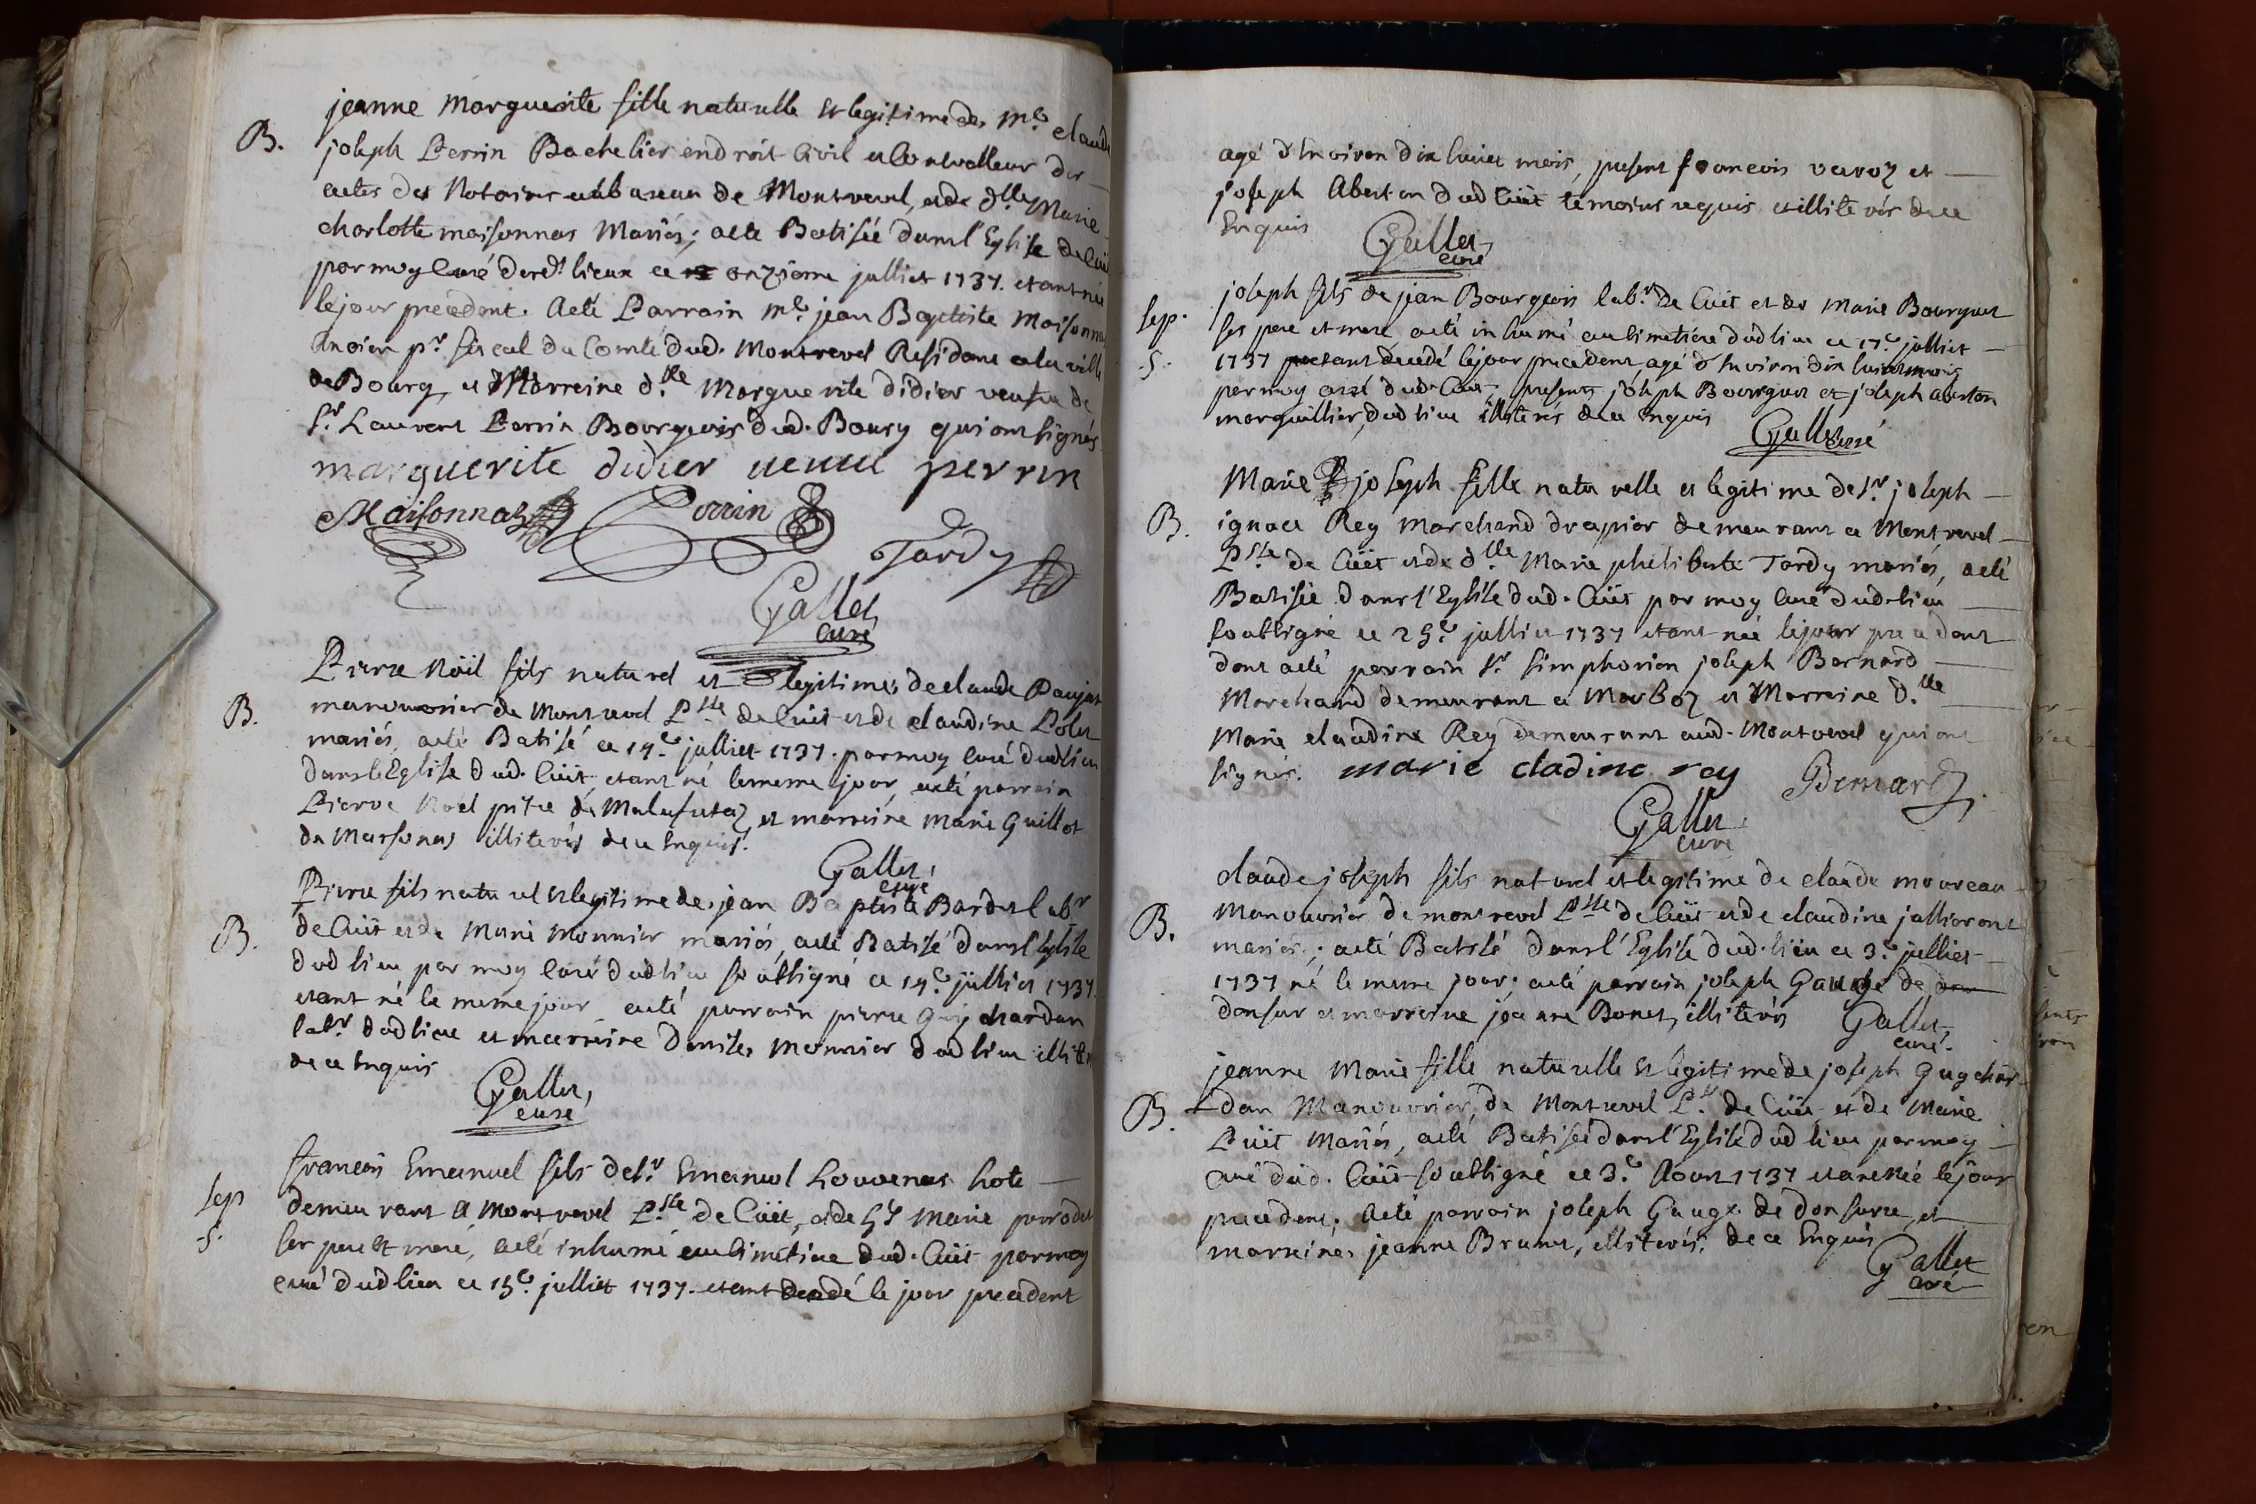 jeanne Marguerite fille naturelle et legitime de Me. claude
B. joseph Perrin Bachelier en droit Civil et Controlleur des
actes des Notaires au bureau de Montrevel, et de dlle Marie
charlotte maisonnas Mariés; a eté Batisée dans l'Eglise de Cüit
par moy Curé desd. lieux ce onzieme julliet 1737. etant née
le jour precedent. A eté Parrain Me. jean Baptiste Maisonnas
Ancien pr. fiscal du Comté dud. Montrevel Residant a la ville
de Bourg et Marreine dlle Marguerite didier veufve de
Sr. Laurent Perrin Bourgeois dud. Bourg qui ont signés
marguerite didier veuve perrin
Maisonnas Perrin
Tardy
Gallet
curé
Pierre Nöil fils naturel et legitime de claude Paujat
B. manouvrier de Montrevel Psse de Cüit et de claudine Polet
mariés, a eté Batisé ce 14.e julliet 1737. par moy Curé dud lieu
dans l'Eglise dud. Cüit, etant né le meme jour, a eté parrain
Pierre Noel pitre de Malafretaz, et marreine marie Guillot
de Marsonas illiterés de ce Enquis.
Gallet
curé
Pierre fils naturel et legitime de jean Baptiste Bardet labr
B. de Cüit et de Marie Monnier mariés, a eté Batisé dans l'Eglise
dud lieu par moy Curé dud lieu soussigné ce 14.e julliet 1737.
etant né le meme jour a eté parrain pierre Guychardan
labr dud lieu et marreine denise Monnier dud lieu illiterés
de ce Enquis
Gallet,
curé
francois Emanuel fils de Sr Emanuel Louvenas hote
Sep demeurant a Montrevel Psse de Cüit, et de Marie perrodet
S. ses pere et mere, a eté inhumé au Cimetiere dud. Cüit par moy
curé dud lieu ce 15.e julliet 1737. etant decedé le jour precedent
agé d'Environ dix huict mois, present francois varoz et
joseph Aberton dud Cüit temoins requis et illiterés de ce
Enquis
Gallet,
curé
joseph fils de jean Bourgeois labr. de Cüit et de Marie Bourguet
Sep. ses pere et mere a eté inhumé au Cimetiere dud lieu ce 17.e julliet
S. 1737 etant decedé le jour precedent, agé d'Environ dix huict mois
par moy curé dud. Cüit, presents joseph Bourguet et joseph aberton
marguillier, dud lieu illiterés de ce Enquis
Gallet curé
Marie joseph fille naturelle et legitime de Sr. joseph
B. ignace Rey Marchand drapier demeurant a Montrevel
Psse de Cüit et de dlle Marie philiberte Tardy mariés, a eté
Batisée dans l'Eglise dud. Cüit par moy Curé dud lieu
soussigné ce 25.e julliet 1737 etant née le jour precedent
dont a eté parrain Sr. simphorien joseph Bernard
Marchand demeurant a Marboz et Marreine dlle
Marie claudine Rey demeurant aud. Montrevel qui ont
signés. marie cladine rey Bernard
Gallet
curé
claude joseph fils naturel et legitime de claude moureau
B. Manouvrier de montrevel Psse de Cüit et de claudine jullieront
mariés; a eté Batisé dans l'Eglise dud. lieu ce 3.e julliet
1737 né le meme jour; a eté parrain joseph Gauge de
donsur et marreine jeanne Bonet, illiterés
Gallet,
curé.
jeanne Marie fille naturelle et legitime de joseph Guychar
B. dan Manouvrier, de Montrevel Ps. de Cüit et de Marie
Püit Mariés, a eté Batisée dans l'Eglise dud lieu par moy
curé dud. Cüit soussigné ce 3.e Aoust 1737 etant née le jour
precedent. A eté parrain joseph Gauge de donsure, et
marreine jeanne Brunet, illiterés. de ce Enquis
Gallet
curé